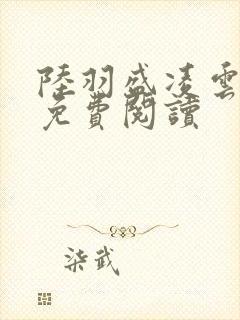 陸羽盛凌雲
免費閱讀
柒武